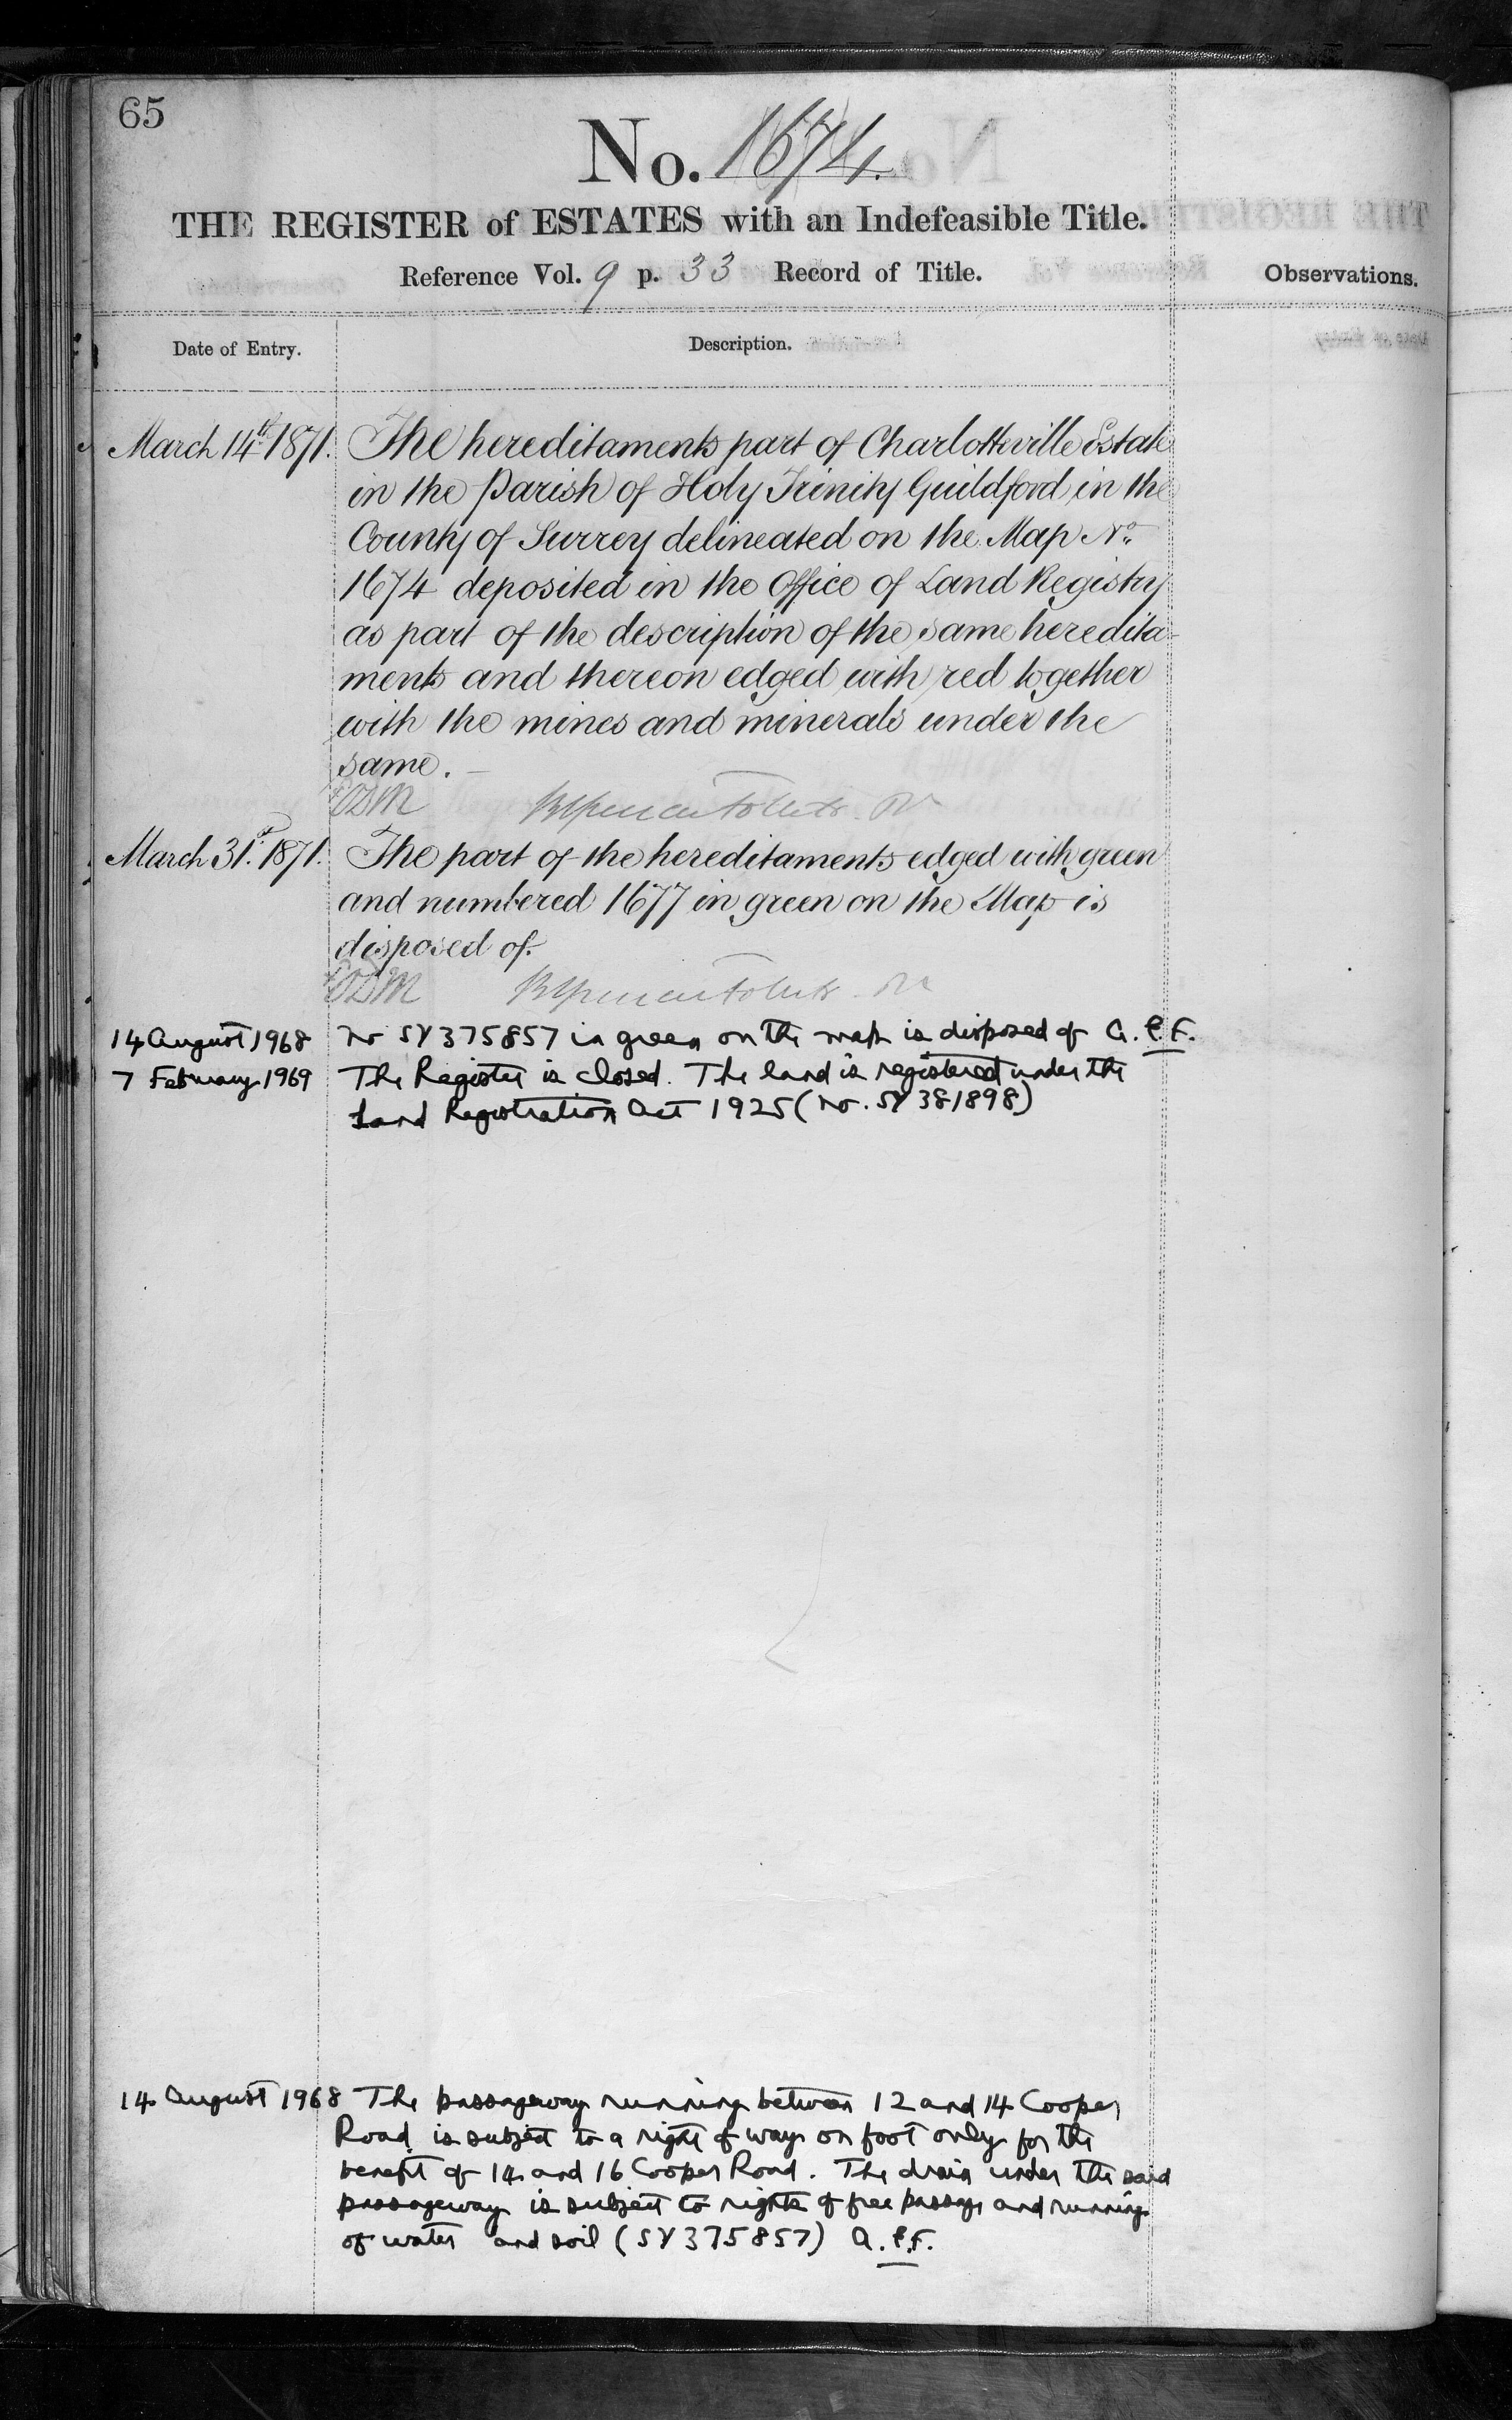 65
No. 1674.
THE REGISTER of ESTATES with an Indefeasible Title.
Reference Vol. 9 p. 33 Record of Title.
Observations.
Date of Entry.
Description.
March 14th 1871. The hereditaments part of Charlotteville Estate
in the Parish of Holy Trinity Guildford in the
County of Surrey delineated on the Map No.
1674 deposited in the Office of Land Registry
as part of the description of the same heredita-
ments and thereon edged with red together
with the mines and minerals under the
same.
March 31st 1871. The part of the hereditaments edged with green
and numbered 1677 in green on the Map is
disposed of.
14 August 1968 No SY375857 in green on the map is disposed of A.P.F.
7 February 1969 The Register is closed. The land is registered under the
Land Registration Act 1925 (No. SY 381898)
14 August 1968 The passageway running between 12 and 14 Cooper
Road is subject to a right of way on foot only for the
benefit of 14 and 16 Cooper Road. The drain under the said
passageway is subject to rights of free passage and running
of water and soil (SY375857) A.P.F.